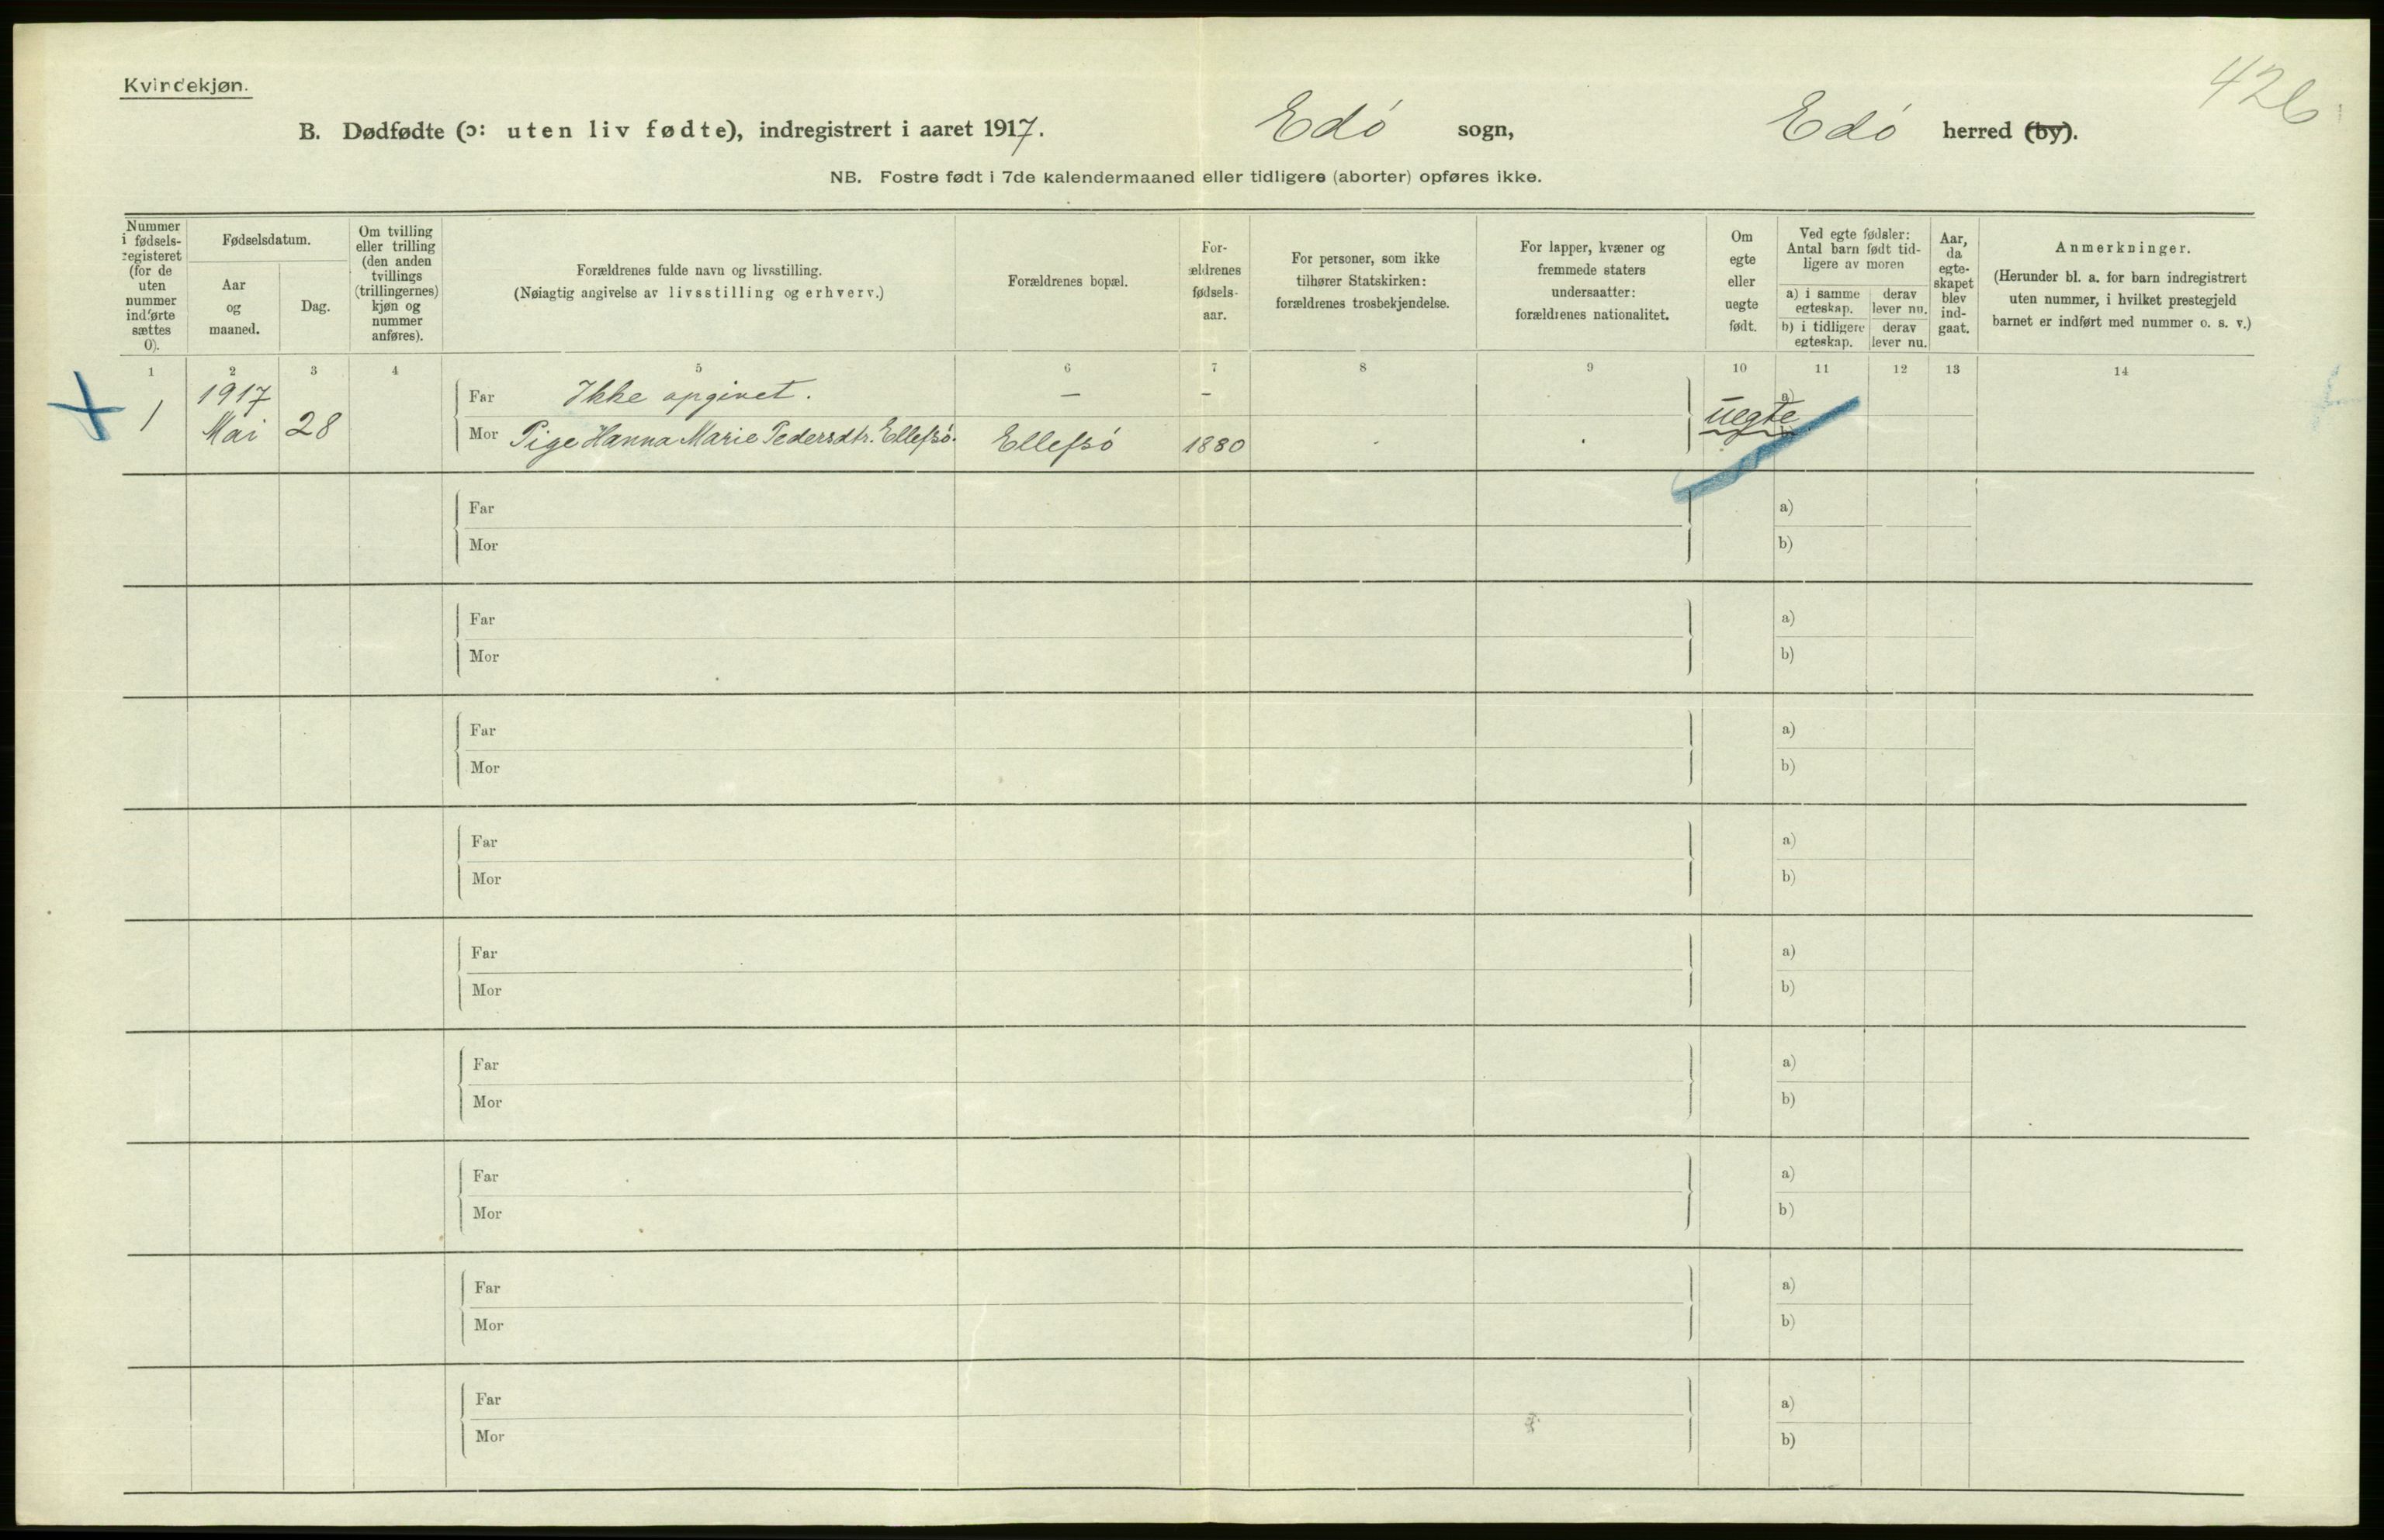 Kvindekjøn.
426
B. Dødfødte (ɔ: uten liv fødte), indregistrert i aaret 1917. Edó sogn, Edó herred (by).
NB. Fostre født i 7de kalendermaaned eller tidligere (aborter) opføres ikke.
Nummer
i fødsels-
registeret
(for de
uten
nummer
indførte
sættes
0).
Fødselsdatum.
Aar
og
maaned.
Dag.
Om tvilling
eller trilling
(den anden
tvillings
(trillingernes)
kjøn og
nummer
anføres).
Forældrenes fulde navn og livsstilling.
(Nøiagtig angivelse av livsstilling og erhverv.)
Forældrenes bopæl.
For-
ældrenes
fødsels-
aar.
For personer, som ikke
tilhører Statskirken:
forældrenes trosbekjendelse.
For lapper, kvæner og
fremmede staters
undersaatter:
forældrenes nationalitet.
Om
egte
eller
uegte
født.
Ved egte fødsler:
Antal barn født tid-
ligere av moren
a) i samme
egteskap.
derav
lever nu.
b) i tidligere
egteskap.
derav
lever nu.
Aar,
da
egte-
skapet
blev
ind-
gaat.
Anmerkninger.
(Herunder bl. a. for barn indregistrert
uten nummer, i hvilket prestegjeld
barnet er indført med nummer o. s. v.)
1 2 3 4 5 6 7 8 9 10 11 12 13 14
1917 Far Ikke opgivet. – – a)
1 Mai 28 Mor Pige Hanna Marie Pedersdtr. Ellefsó. Ellefsó 1880 uegte b)
Far a)
Mor b)
Far a)
Mor b)
Far a)
Mor b)
Far a)
Mor b)
Far a)
Mor b)
Far a)
Mor b)
Far a)
Mor b)
Far a)
Mor b)
Far a)
Mor b)